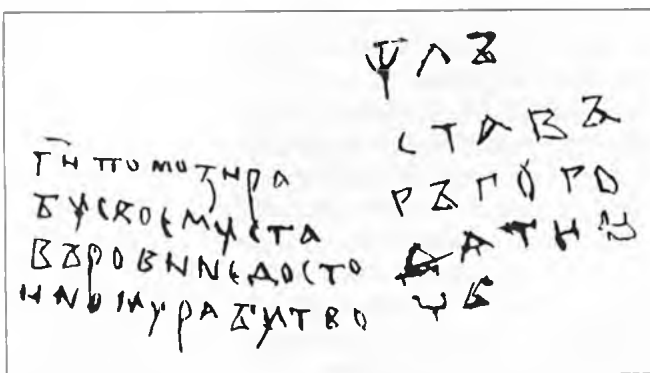 Г҃Н ПОМОЗНРА
БУСВОЕМУСТА
ВЪРОВННЕДОСТО
ННОМУРАБУТВО
Ѱ Л Ъ
С Т А В Ъ
Р Ъ Г О Р О
Д А Т Н Н
Ч Ь